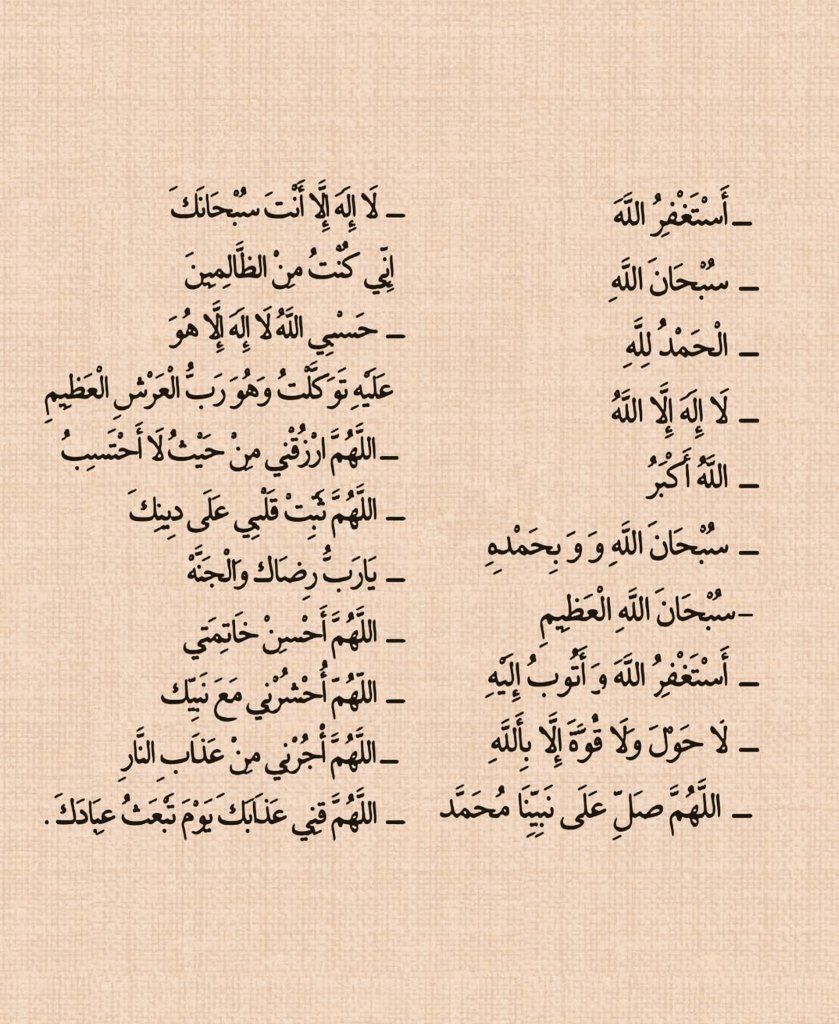 _ أَسْتَغْفِرُ اللَّهَ
_ سُبْحَانَ اللَّهِ
_ الْحَمْدُ لِلَّهِ
_ لَا إِلَهَ إِلَّا اللَّهُ
_ اللَّهُ أَكْبَرُ
_ سُبْحَانَ اللَّهِ وَ وَ بِحَمْدِهِ
-سُبْحَانَ اللَّهِ الْعَظِيمِ
_ أَسْتَغْفِرُ اللَّهَ وَ أَتُوبُ إِلَيْهِ
_ لَا حَوْلَ وَلَا قُوَّةَ إِلَّا بِأَللَّهِ
_ اللَّهُمَّ صَلِّ عَلَى نَبِيِّنَا مُحَمَّد
_ لَا إِلَهَ إِلَّا أَنْتَ سُبْحَانَكَ
إِنِّي كُنْتُ مِنْ الظَّالِمِينَ
_ حَسْبِي اللَّهُ لَا إِلَهَ إِلَّا هُوَ
عَلَيْهِ تَوَكَّلْتُ وَهُوَ رَبُّ الْعَرْشِ الْعَظِيمِ
_ اللَّهُمَّ ارْزُقْنِي مِنْ حَيْثُ لَا أَحْتَسِبُ
_ اللَّهُمَّ ثَبِتْ قَلْبِي عَلَى دِينِكَ
_ يَارَبُّ رِضَاك وَالْجَنَّهْ
_ اللَّهُمَّ أَحْسِنْ خَاتِمَتي
_ اللّهُمّ أُحْشُرْنِي مَعَ نَبِيِّك
_ اللَّهُمَّ أْجُرْنِي مِنْ عَذَابِ النَّارِ
_ اللَّهُمَّ قِنِي عَذَابَكَ يَوْمَ تَبْعَثُ عِبَادَكَ .